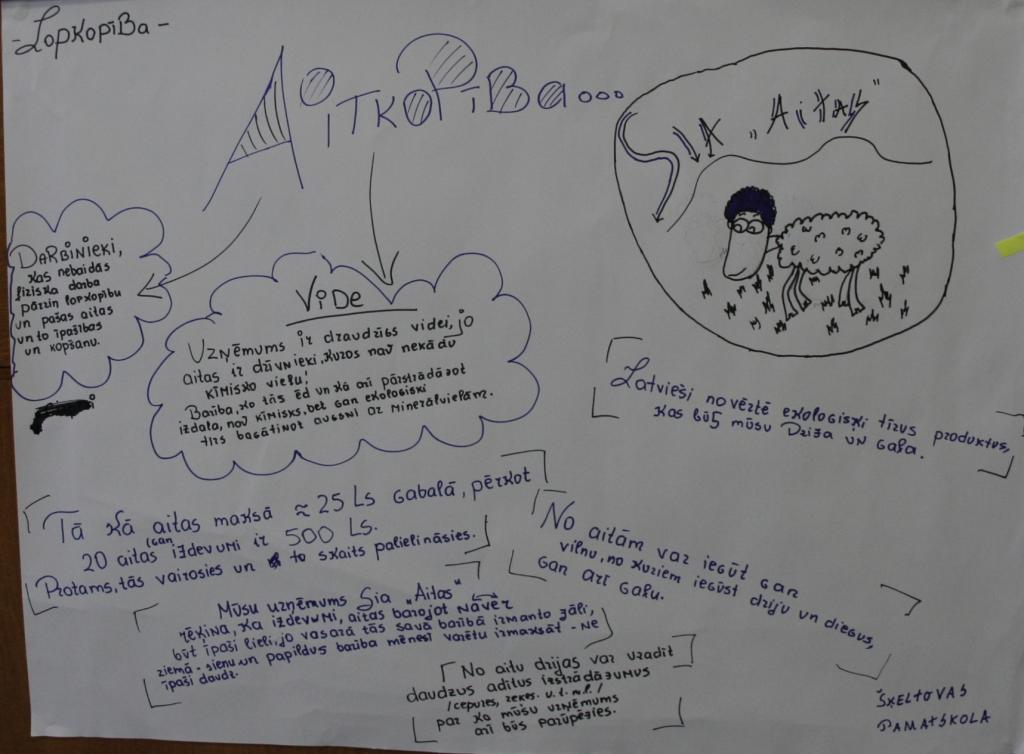 - Lopkopība -
Aitkopība...
SIA „Aitas"
Darbinieki,
kas nebaidās
fiziska darba
pārzin lopkopību
un pašas aitas
un to īpašības
un kopšanu.
Vide
Uzņēmums ir draudzīgs videi, jo
aitas ir dzīvnieki, kuros nav nekādu
ķīmisko vielu!
Barība, ko tās ēd un kā arī pārstrādājot
izdala, nav ķīmisks, bet gan ekoloģiski
tīrs bagātinot augsni ar minerālvielām.
Latvieši novērtē ekoloģiski tīrus produktus,
kas būs mūsu Dzija un Gaļa.
Tā kā aitas maksā ≈ 25 Ls gabalā, pērkot
20 aitas gan izdevumi ir 500 Ls.
Protams, tās vairosies un to skaits palielināsies.
No aitām var iegūt gan
vilnu, no kuriem iegūst dziju un diegus,
gan arī gaļu.
Mūsu uzņēmums Sia „Aitas"
rēķina, ka izdevumi, aitas barojot nāvēr
būt īpaši lieli, jo vasarā tās savā barībā izmanto zāli,
ziemā - sienu un papildus barība mēnesī varētu izmaksāt - ne
īpaši daudz.
No aitu dzijas var uzadīt
daudzus adītus izstrādājumus
/cepures, zeķes. u. t. m. l. /
par ko mūsu uzņēmums
arī būs parūpējies.
Šķeltovas
pamatskola